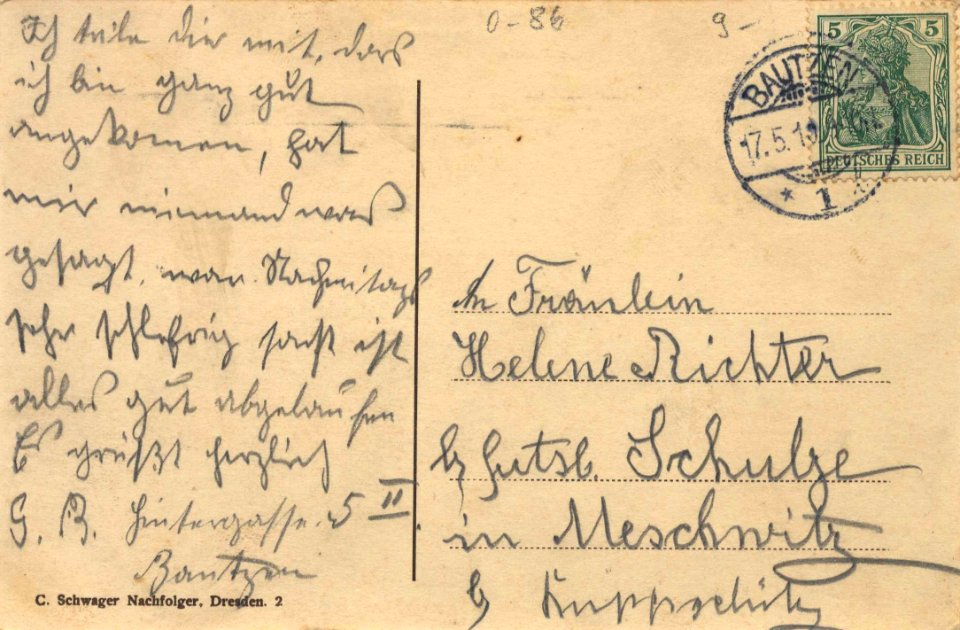 0-86
9-
Ich teile dir mit, dass
ich bin ganz gut
angekommen, hat
mir niemand was
gesagt, war Nachmitags
sehr schlefrig sonst ist
alles gut abgelaufen
Es grüßt herzlich
G. R. Hintergasse. 5 II.
Bautzen
C. Schwager Nachfolger, Dresden. 2
5 5
DEUTSCHES REICH
BAUTZEN
17.5.1
* 1
An Fräulein
Helene Richter
b/ Gutsb. Schulze
in Meschwitz
b/ Kuppschütz